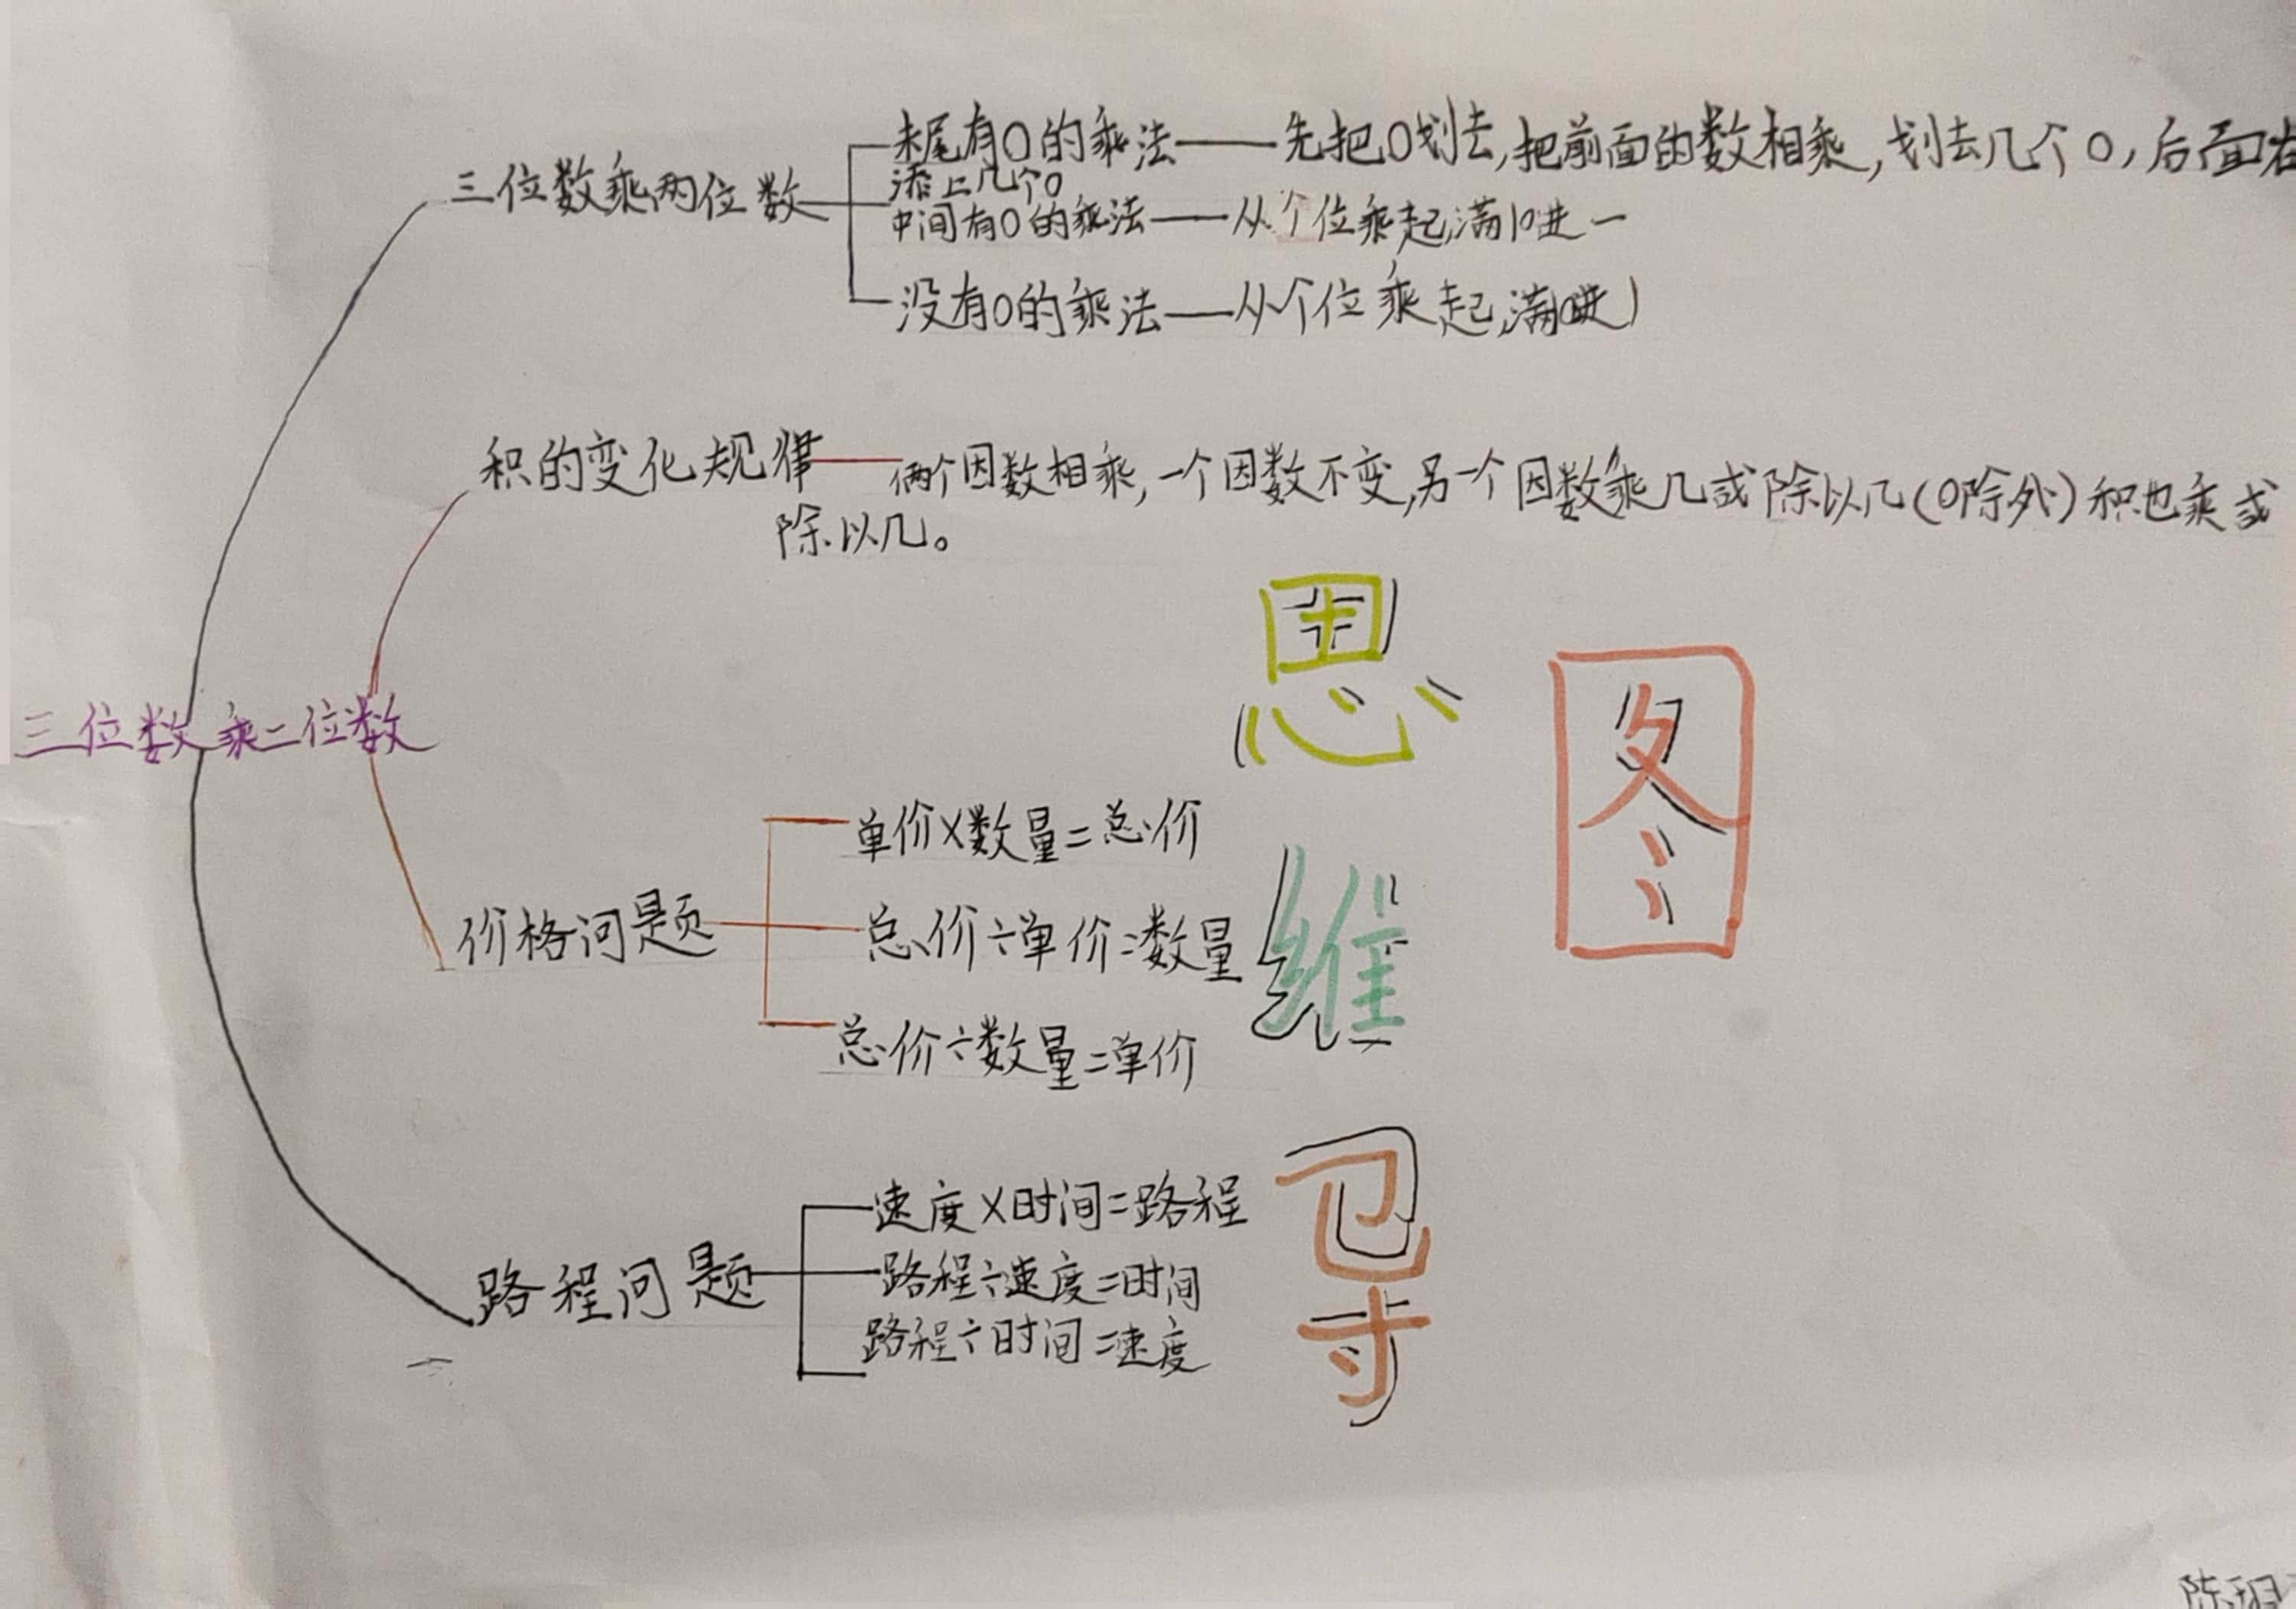 三位数乘两位数
末尾有0的乘法——先把0划去,把前面的数相乘,划去几个0,后面
添上几个0
中间有0的乘法——从个位乘起,满10进一
没有0的乘法——从个位乘起,满10进1
积的变化规律——俩个因数相乘,一个因数不变,另一个因数乘几或除以几(0除外)积也乘或
除以几。
三位数乘二位数
价格问题
单价×数量=总价
总价÷单价=数量
总价÷数量=单价
路程问题
速度×时间=路程
路程÷速度=时间
路程÷时间=速度
思
维
导
图